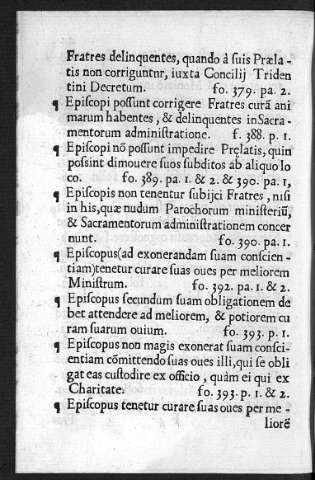 Fratres delinquentes, quando à suis Præla-
tis non corriguntur, iuxta Concilij Triden
tini Decretum. fo. 379. pa. 2.
¶ Episcopi possunt corrigere Fratres curã ani
marum habentes, & delinquentes in Sacra-
mentorum administratione. f. 388. p. 1.
¶ Episcopi nõ possunt impedire Pręlatis, quin
possint dimouere suos subditos ab aliquo lo
co. fo. 389. pa. 1. & 2. & 390. pa. 1,
¶ Episcopis non tenentur subijci Fratres, nisi
in his, quæ nudum Parochorum ministeriũ,
& Sacramentorum administrationem concer
nunt. fo. 390. pa. 1.
¶ Episcopus (ad exonerandam suam conscien-
tiam) tenetur curare suas oues per meliorem
Ministrum. fo. 392. pa. 1. & 2.
¶ Episcopus secundum suam obligationem de
bet attendere ad meliorem, & potiorem cu
ram suarum ouium. fo. 393. p. 1.
¶ Episcopus non magis exonerat suam consci-
entiam cõmittendo suas oues illi, qui se obli
gat eas custodire ex officio, quàm ei qui ex
Charitate. fo. 393. p. 1. & 2.
¶ Episcopus tenetur curare suas oues per me-
liorẽ